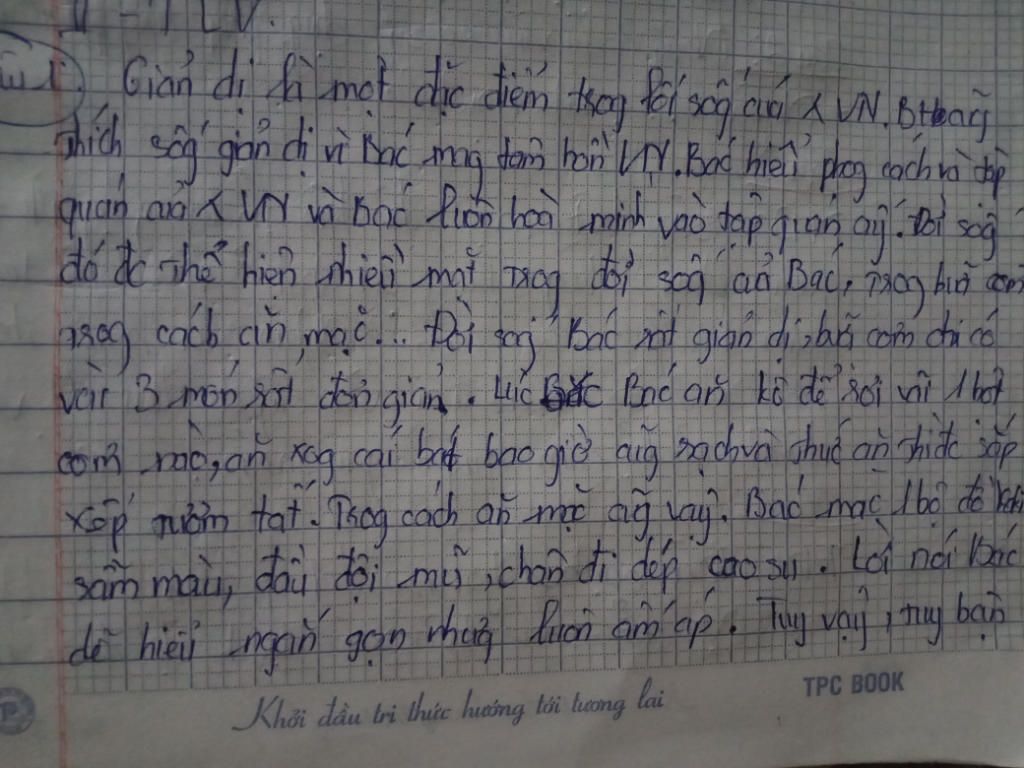 Giản dị là một đặc điểm trog lối sốg của VN. B
thích sốg giản dị vì Bác mag tâm hồn VN. Bác hiểu phog cách và tập
quán của VN và Bác luôn hoà mình vào tập quán ấy. Lối sốg
đó đc thể hiện nhiều mặt trog đời sốg của Bác, trog bữa cơm
trog cách ăn mặc... Đời sốg Bác rất giản dị, bữa cơm chỉ có
vài 3 món rất đơn giản. Lúc Bác ăn kô để rơi vãi 1 hột
cơm nào, ăn xog cái bát bao giờ cũg sạch và thức ăn thì đc sắp
xếp tươm tất. Trog cách ăn mặc cũg vậy. Bác mặc 1 bộ đồ
sẫm màu, đầu đội mũ, chân đi dép cao su. Lời nói Bác
dễ hiểu ngắn gọn nhưg luôn ấm áp. Tuy vậy, tuy bận
Khởi đầu tri thức hướng tới tương lai
TPC BOOK